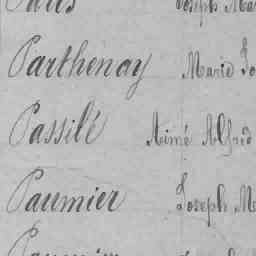 Paris Joseph Ma
Parthenay Marie Jo
Passilé Aimé Alfred
Paumier Joseph M